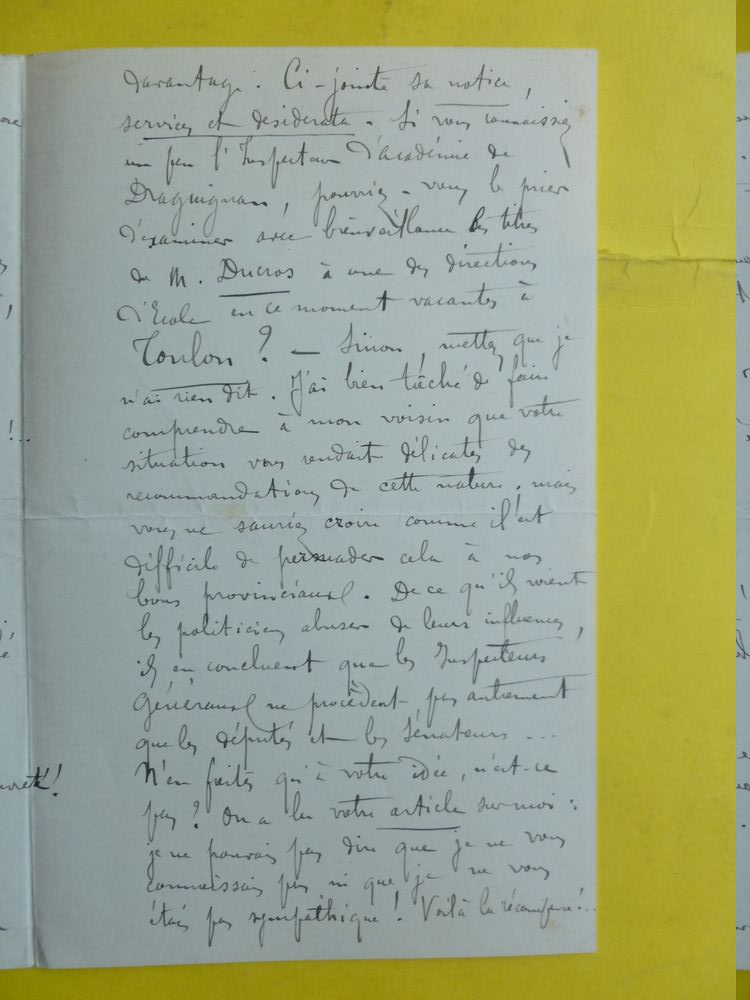 davantage. Ci-jointe sa notice,
services et desiderata. Si vous connaissiez
un peu l'Inspecteur d'académie de
Draguignan, pourriez-vous le prier
d'examiner avec bienveillance les titres
de M. Ducros à une des directions
d'École en ce moment vacantes à
Toulon ? — Sinon, mettez que je
n'ai rien dit. J'ai bien tâché de faire
comprendre à mon voisin que votre
situation vous rendait délicates des
recommandations de cette nature, mais
vous ne sauriez croire comme il est
difficile de persuader cela à nos
bons provinciaux. De ce qu'ils voient
les politiciens abuser de leurs influences,
ils en concluent que les Inspecteurs
Généraux ne procèdent pas autrement
que les députés et les Sénateurs ...
N'en faites qu'à votre idée, n'est-ce
pas ? On a lu votre article sur moi :
je ne pouvais pas dire que je ne vous
connaissais pas ni que je ne vous
étais pas sympathique ! Voilà la récompense !..